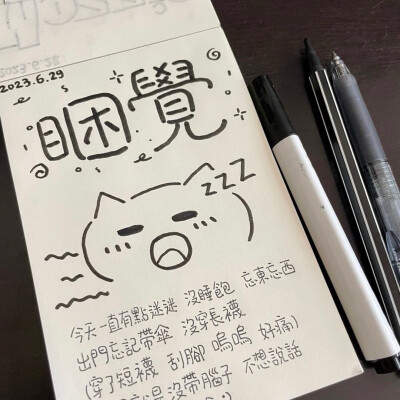 2023.6.29
睏覺
zzz
今天一直有點迷迷 沒睡飽 忘東忘西
出門忘記帶傘 沒穿長襪
(穿了短襪 刮腳 嗚嗚 好痛)
是沒帶腦子 不想說話